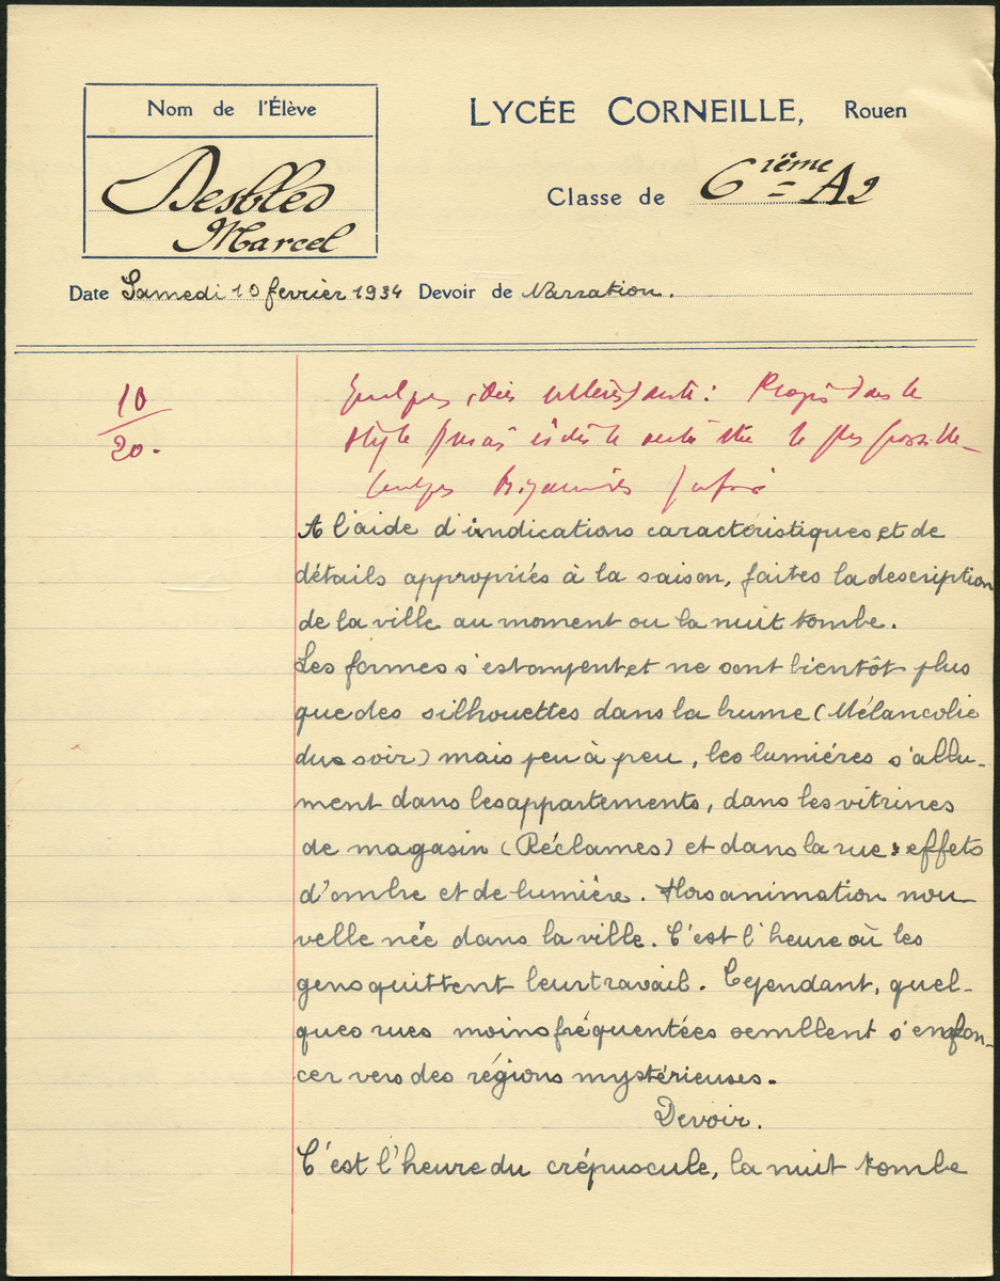 Nom de l'Élève
LYCÉE CORNEILLE, Rouen
Desbled
Marcel
Classe de 6ième A2
Date Samedi 10 fevrier 1934 Devoir de Narration.
10
20.
Quelques idées intéressantes : Progrès dans le
style
le plus possible
Quelques
A l'aide d'indications caractéristiques et de
détails appropriés à la saison, faites la description
de la ville au moment ou la nuit tombe.
Les formes s'estompent et ne sont bientôt plus
que des silhouettes dans la brume (Mélancolie
du soir) mais peu à peu, les lumiéres s'allu-
ment dans les appartements, dans les vitrines
de magasin (Réclames) et dans la rue : effets
d'ombre et de lumière. Hors animation nou-
velle née dans la ville. C'est l'heure où les
gens quittent leur travail. Cependant, quel-
ques rues moins fréquentées semblent s'enfon-
cer vers des régions mystérieuses.
Devoir.
C'est l'heure du crépuscule, la nuit tombe